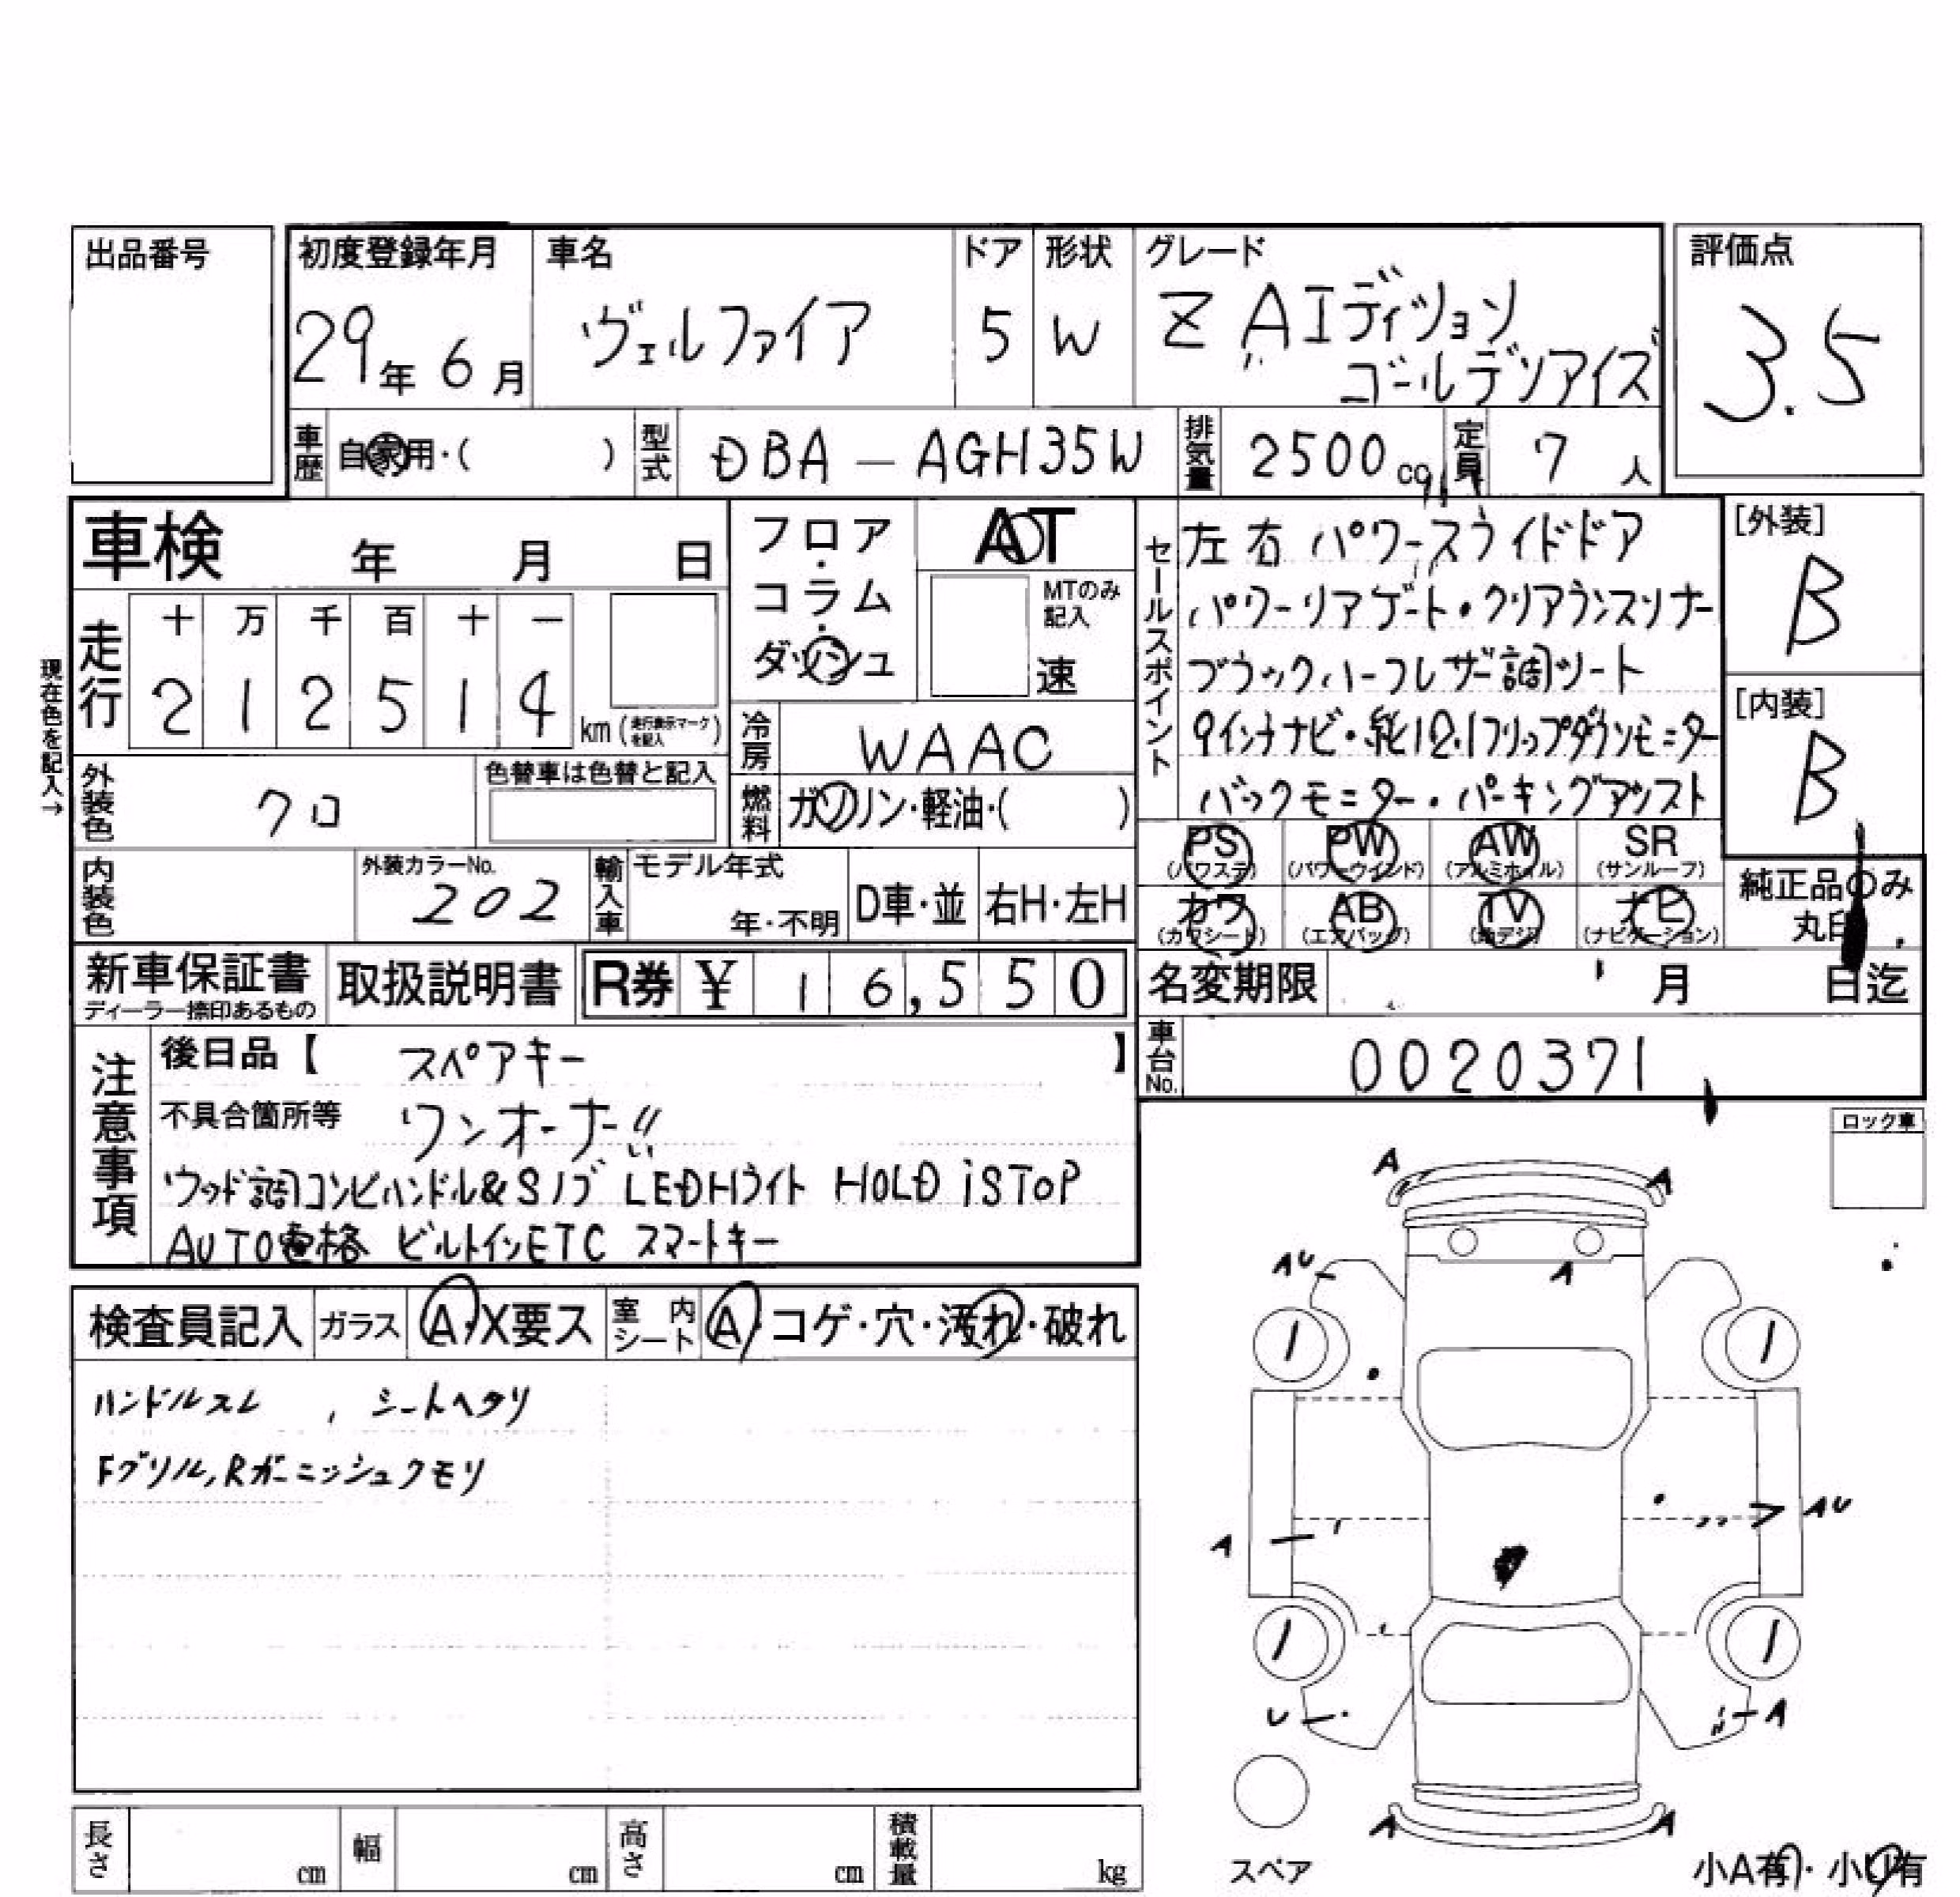 出品番号
初度登録年月 29年 6月
車名 ヴェルファイア
ドア 5
形状 W
グレード Z Aエディション
ゴールデンアイズ
評価点 3.5
車歴 自家用・( )
型式 DBA-AGH35W
排気量 2500cc
定員 7人
車検 年 月 日
フロア・コラム・ダッシュ
AT
MTのみ記入 速
現在色を記入→
走行 十 万 千 百 十 一
2 1 2 5 1 4 km (走行表示マークを記入)
冷房 WAAC
外装色 クロ
色替車は色替と記入
燃料 ガソリン・軽油・( )
内装色
外装カラーNo. 202
輸入車 モデル年式 年・不明 D車・並 右H・左H
セールスポイント
左右パワースライドドア
パワーリアゲート・クリアランスソナー
ブラックハーフレザー調シート
9インチナビ・純12.1フリップダウンモニター
バックモニター・パーキングアシスト
[外装] B
[内装] B
PS (パワステ) PW (パワーウインド) AW (アルミホイル) SR (サンルーフ)
カワ (カワシート) AB (エアバッグ) TV (地デジ) ナビ (ナビゲーション)
純正品のみ丸印
新車保証書 ディーラー捺印あるもの
取扱説明書
R券 ¥ 16,550
名変期限 月 日迄
車台No. 0020371
注意事項
後日品【 スペアキー 】
不具合箇所等 ワンオーナー!!
ウッド調コンビハンドル&Sノブ LEDHライト HOLD iSTOP
AUTO電格 ビルトインETC スマートキー
ロック車
検査員記入 ガラス A・X要ス 室内シート A・コゲ・穴・汚れ・破れ
ハンドルスレ , シートヘタリ
Fグリル,Rガーニッシュクモリ
A A
AU A
/ /
A AU
/ /
U A
A A
スペア
小A有・小U有
長さ cm 幅 cm 高さ cm 積載量 kg